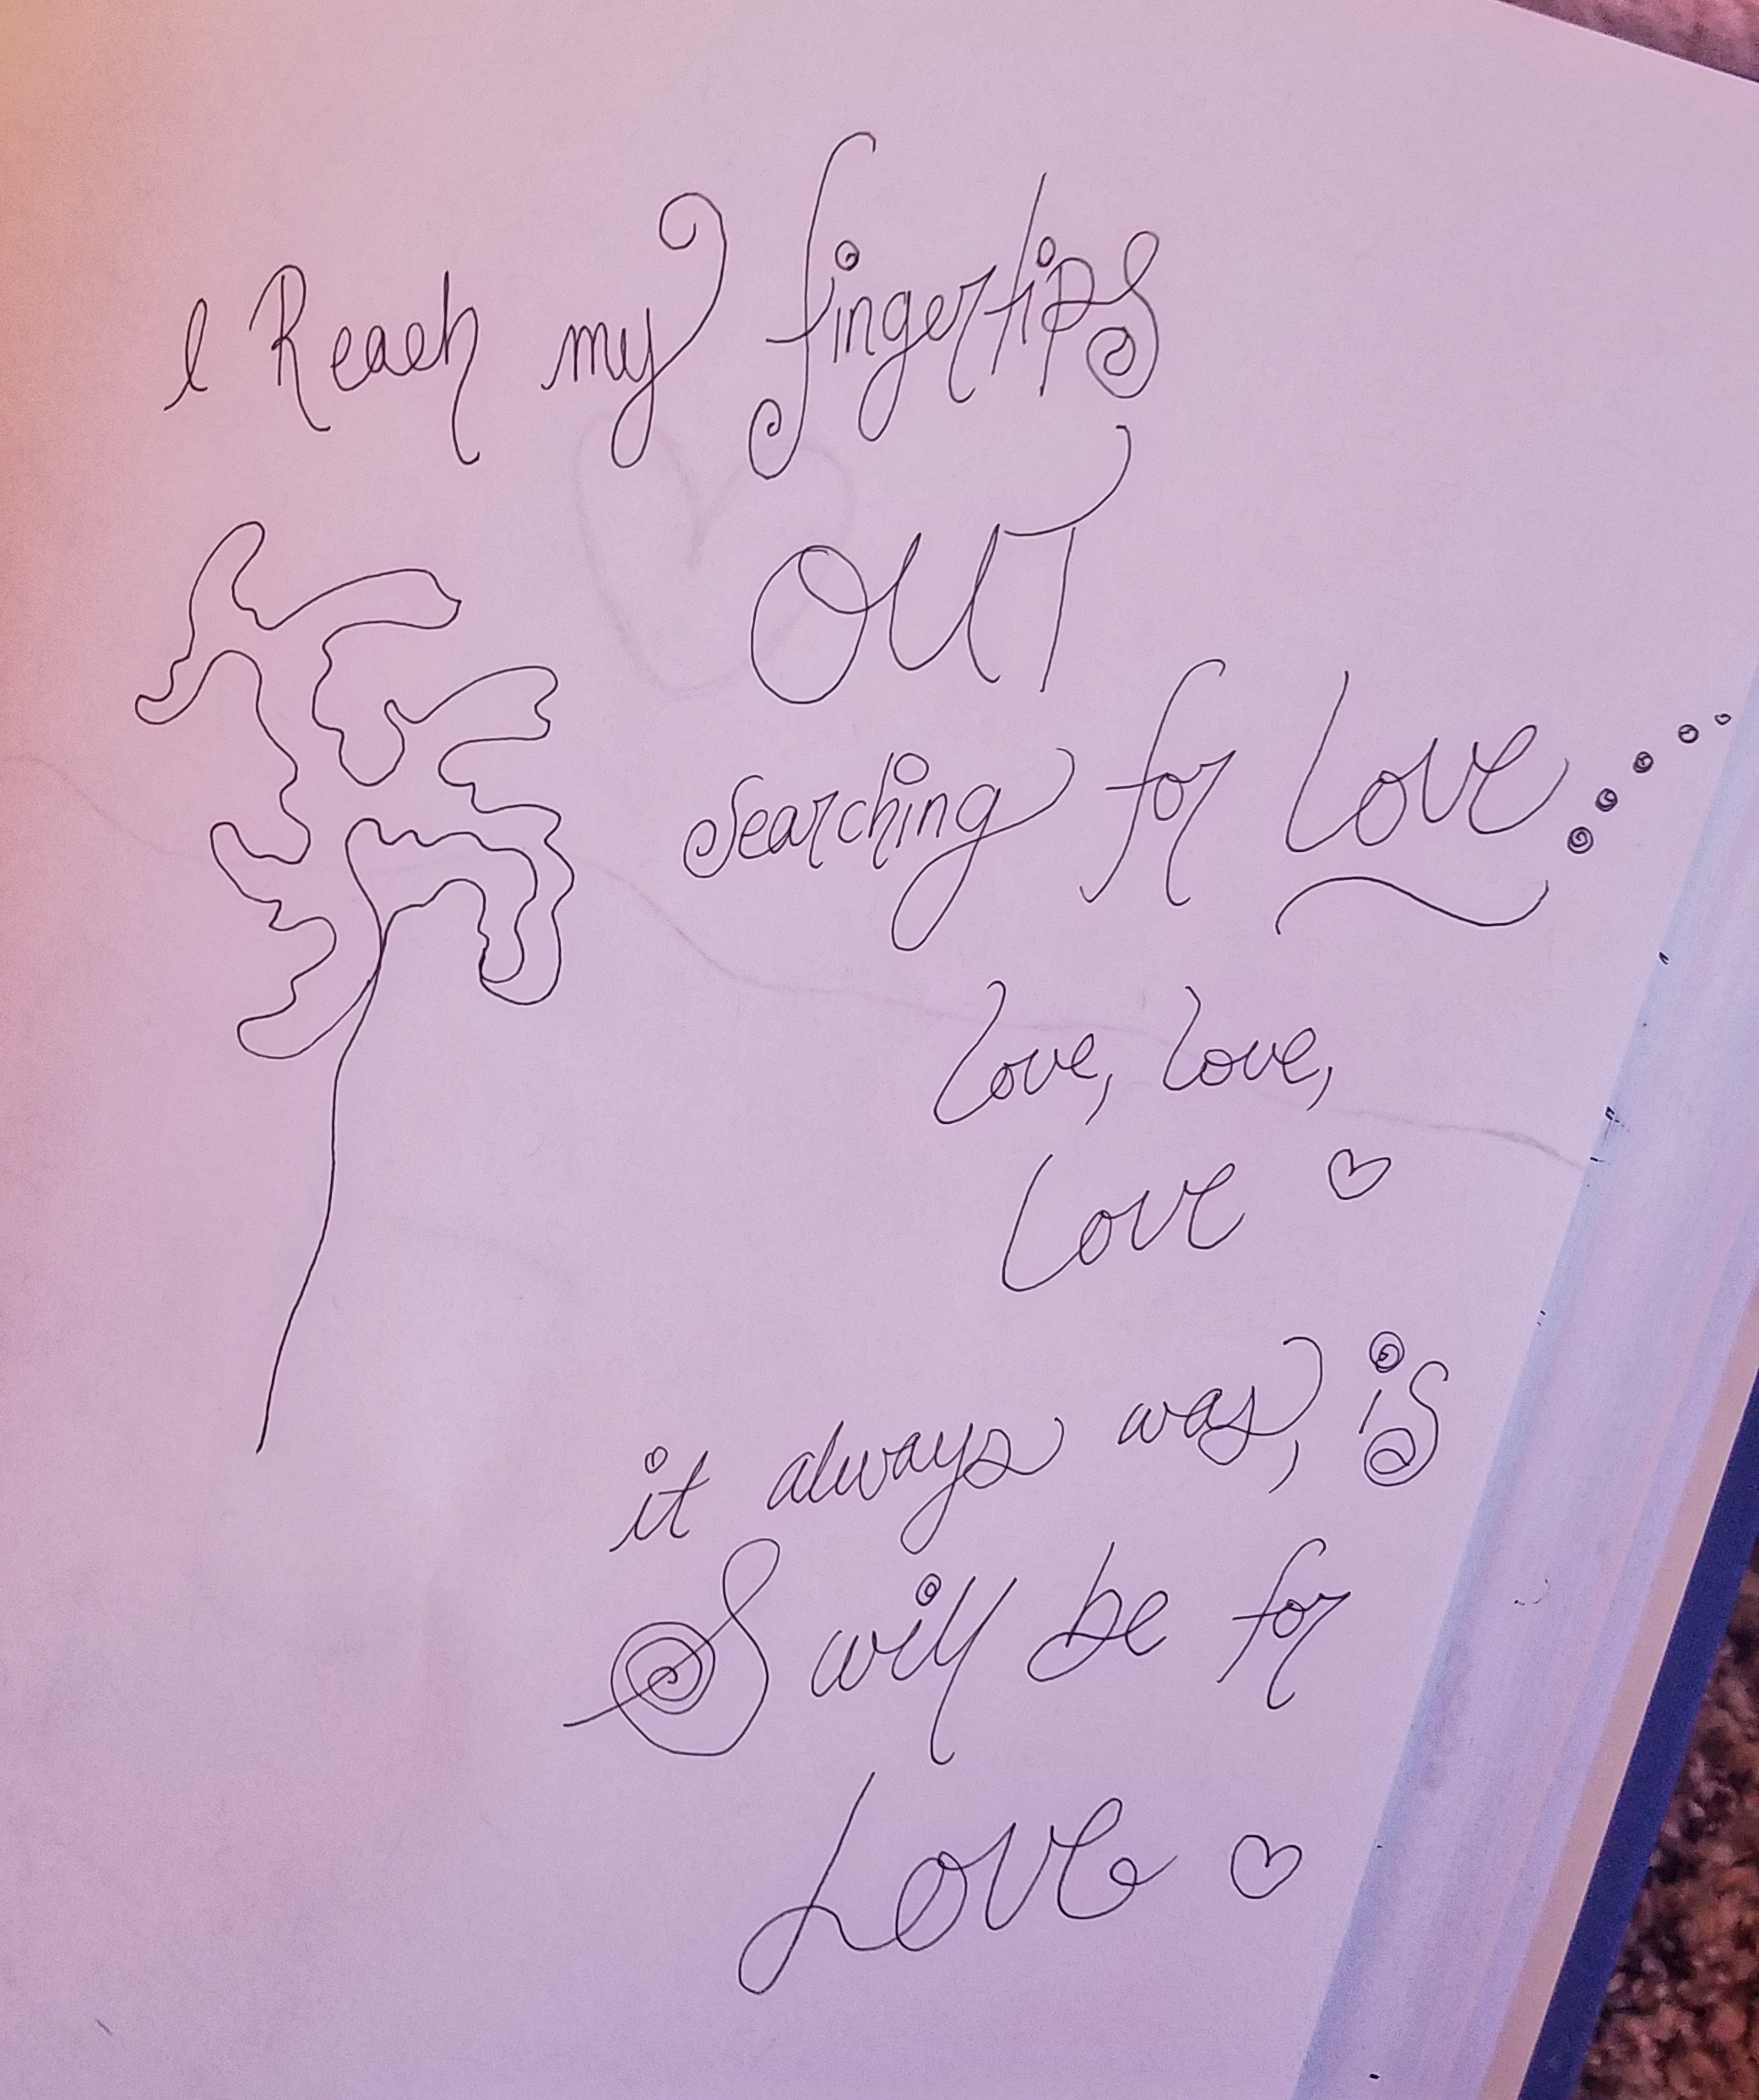 I Reach my fingertips
OUT
searching for Love.....
Love, Love,
Love ♡
it always was, is
& will be for
Love ♡